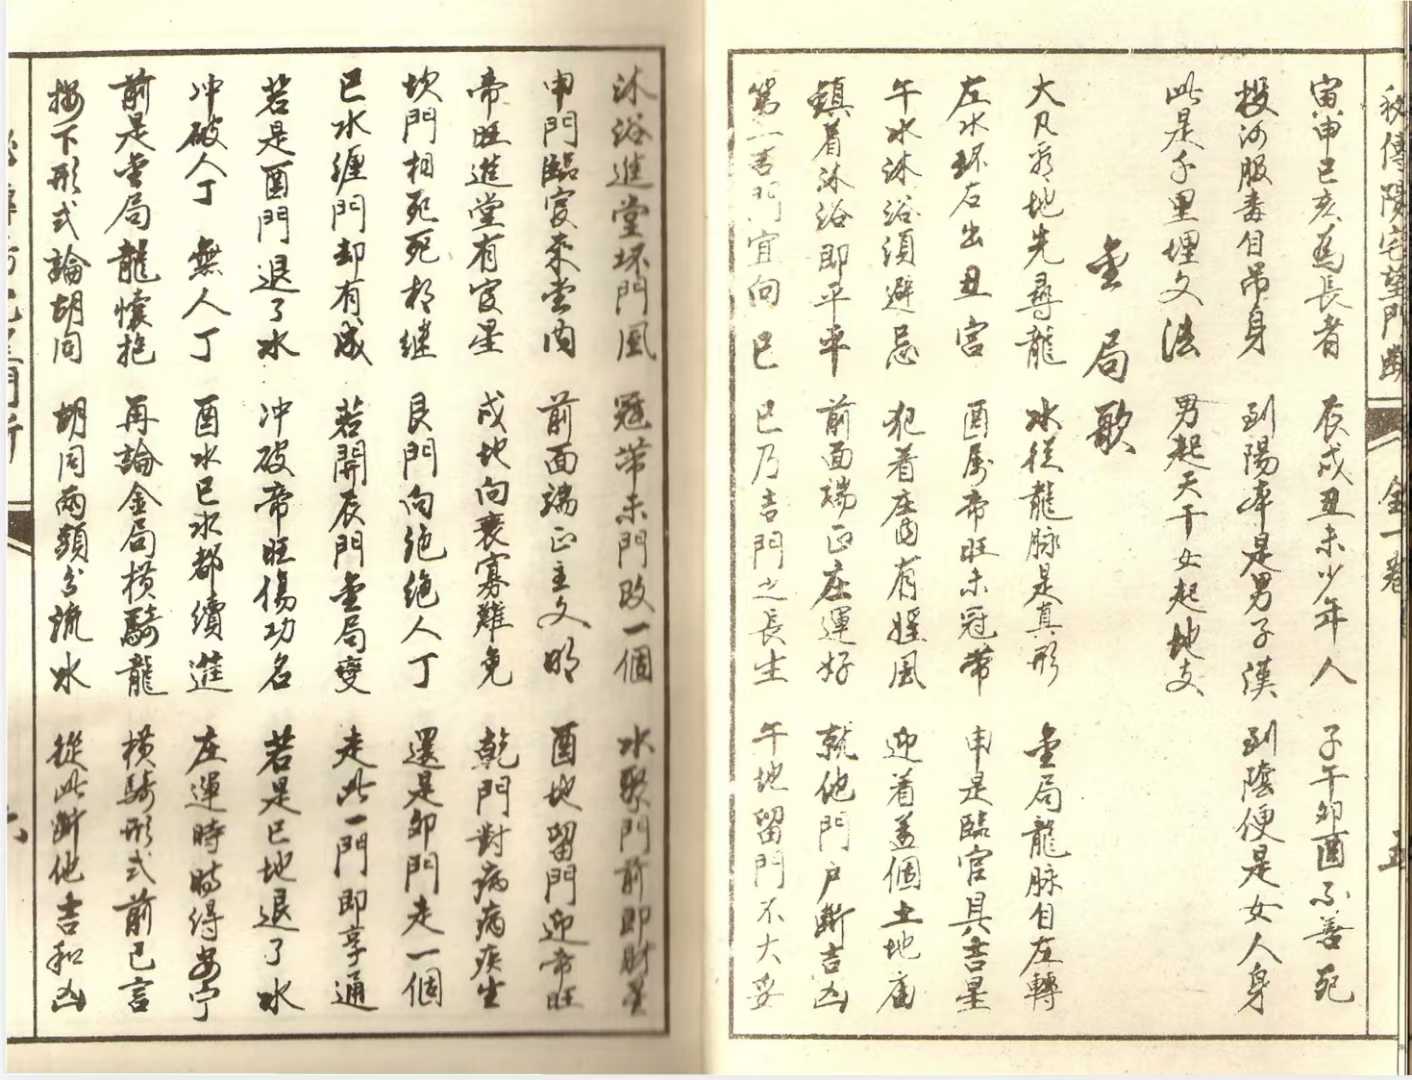 秘傳陽宅望門斷
全一卷
五
寅申巳亥為長者 辰戌丑未少年人 子午卯酉不善死
投河服毒自吊身 到陽本是男子漢 到陰便是女人身
此是千里埋文法 男起天干女起地支
金局歌
大凡看地先尋龍 水從龍脉是真形 金局龍脉自左轉
左水环右出丑宫 酉属帝旺未冠带 申是臨官具吉星
午水沐浴須避忌 犯着庄内有婬風 迎着盖個土地庙
鎮着沐浴即平平 前面端正庄運好 就他門户断吉凶
第一吉門宜向巳 巳乃吉門之長生 午地留門不大妥
沐浴進堂坏門風 冠带未門改一個 水聚門前即財星
申門臨官來堂内 前面端正主文明 酉地留門迎帝旺
帝旺進堂有官星 戌地向衰寡難免 乾門對病病疾生
坎門相死死相继 艮門向绝绝人丁 還是卯門走一個
巳水缠門却有成 若開辰門金局變 走此一門即享通
若是酉門退了水 冲破帝旺傷功名 若是巳地退了水
冲破人丁無人丁 酉水巳水都續進 庄運時時得安宁
前是金局龍懷抱 再論金局横騎龍 横騎形式前已言
按下形式論胡同 胡同兩類分流水 從此断他吉和凶